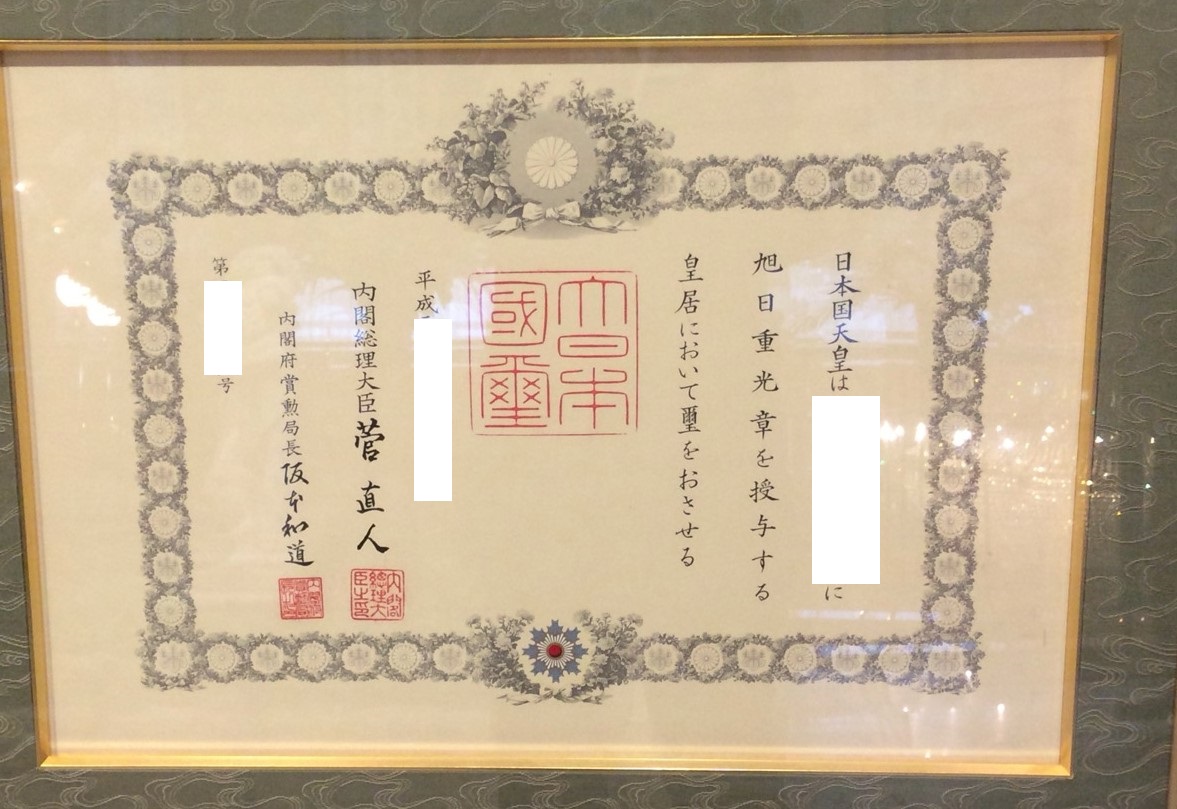 日本国天皇は
に
旭日重光章を授与する
皇居において璽をおさせる
大日本
國璽
平成
内閣総理大臣菅直人
内閣総理大臣之印
内閣府賞勲局長阪本和道
第
号